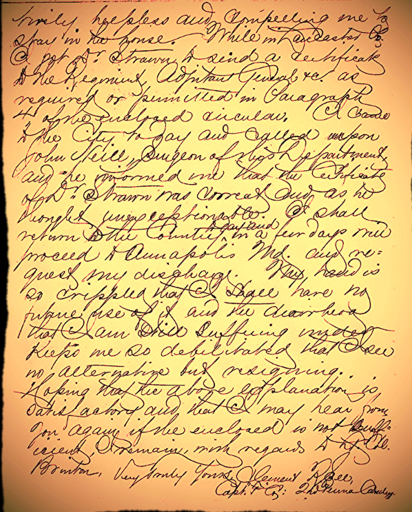 tirely helpless and compelling me to
stay in the house. While in Lancaster Co
I got Dr. Strawn to send a Certificate
to the Regiment, Adjutant General &c. as
required or permitted in Paragraph
4 of the enclosed circular. I came
to the City to day and called upon
John Neill, Surgeon of this Department,
and he informed me that the Certificate
of Dr. Strawn was correct and as he
thought unexceptionable. I shall
return to the Country to day and in a few days will
proceed to Annapolis Md. and re-
quest my discharge. My hand is
so crippled that I shall have no
future use of it and the diarrhea
that I am still suffering under
keeps me so debilitated that I see
no alternative but resigning.
Hoping that the above explanation is
satisfactory and that I may hear from
you again if the enclosed is not suffi-
cient, I remain, with regards to Lt. Col.
Brinton, Very truly Yours, Clement
Capt. Co. Penna Cavalry